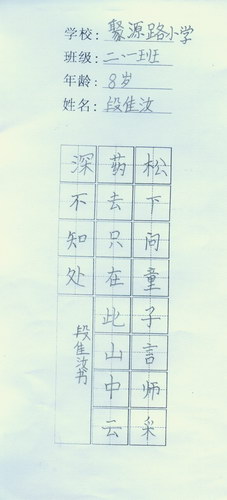 学校：聚源路小学
班级：二·一班
年龄：8岁
姓名：段佳汝
松下问童子言师采
药去只在此山中云
深不知处
段佳汝书